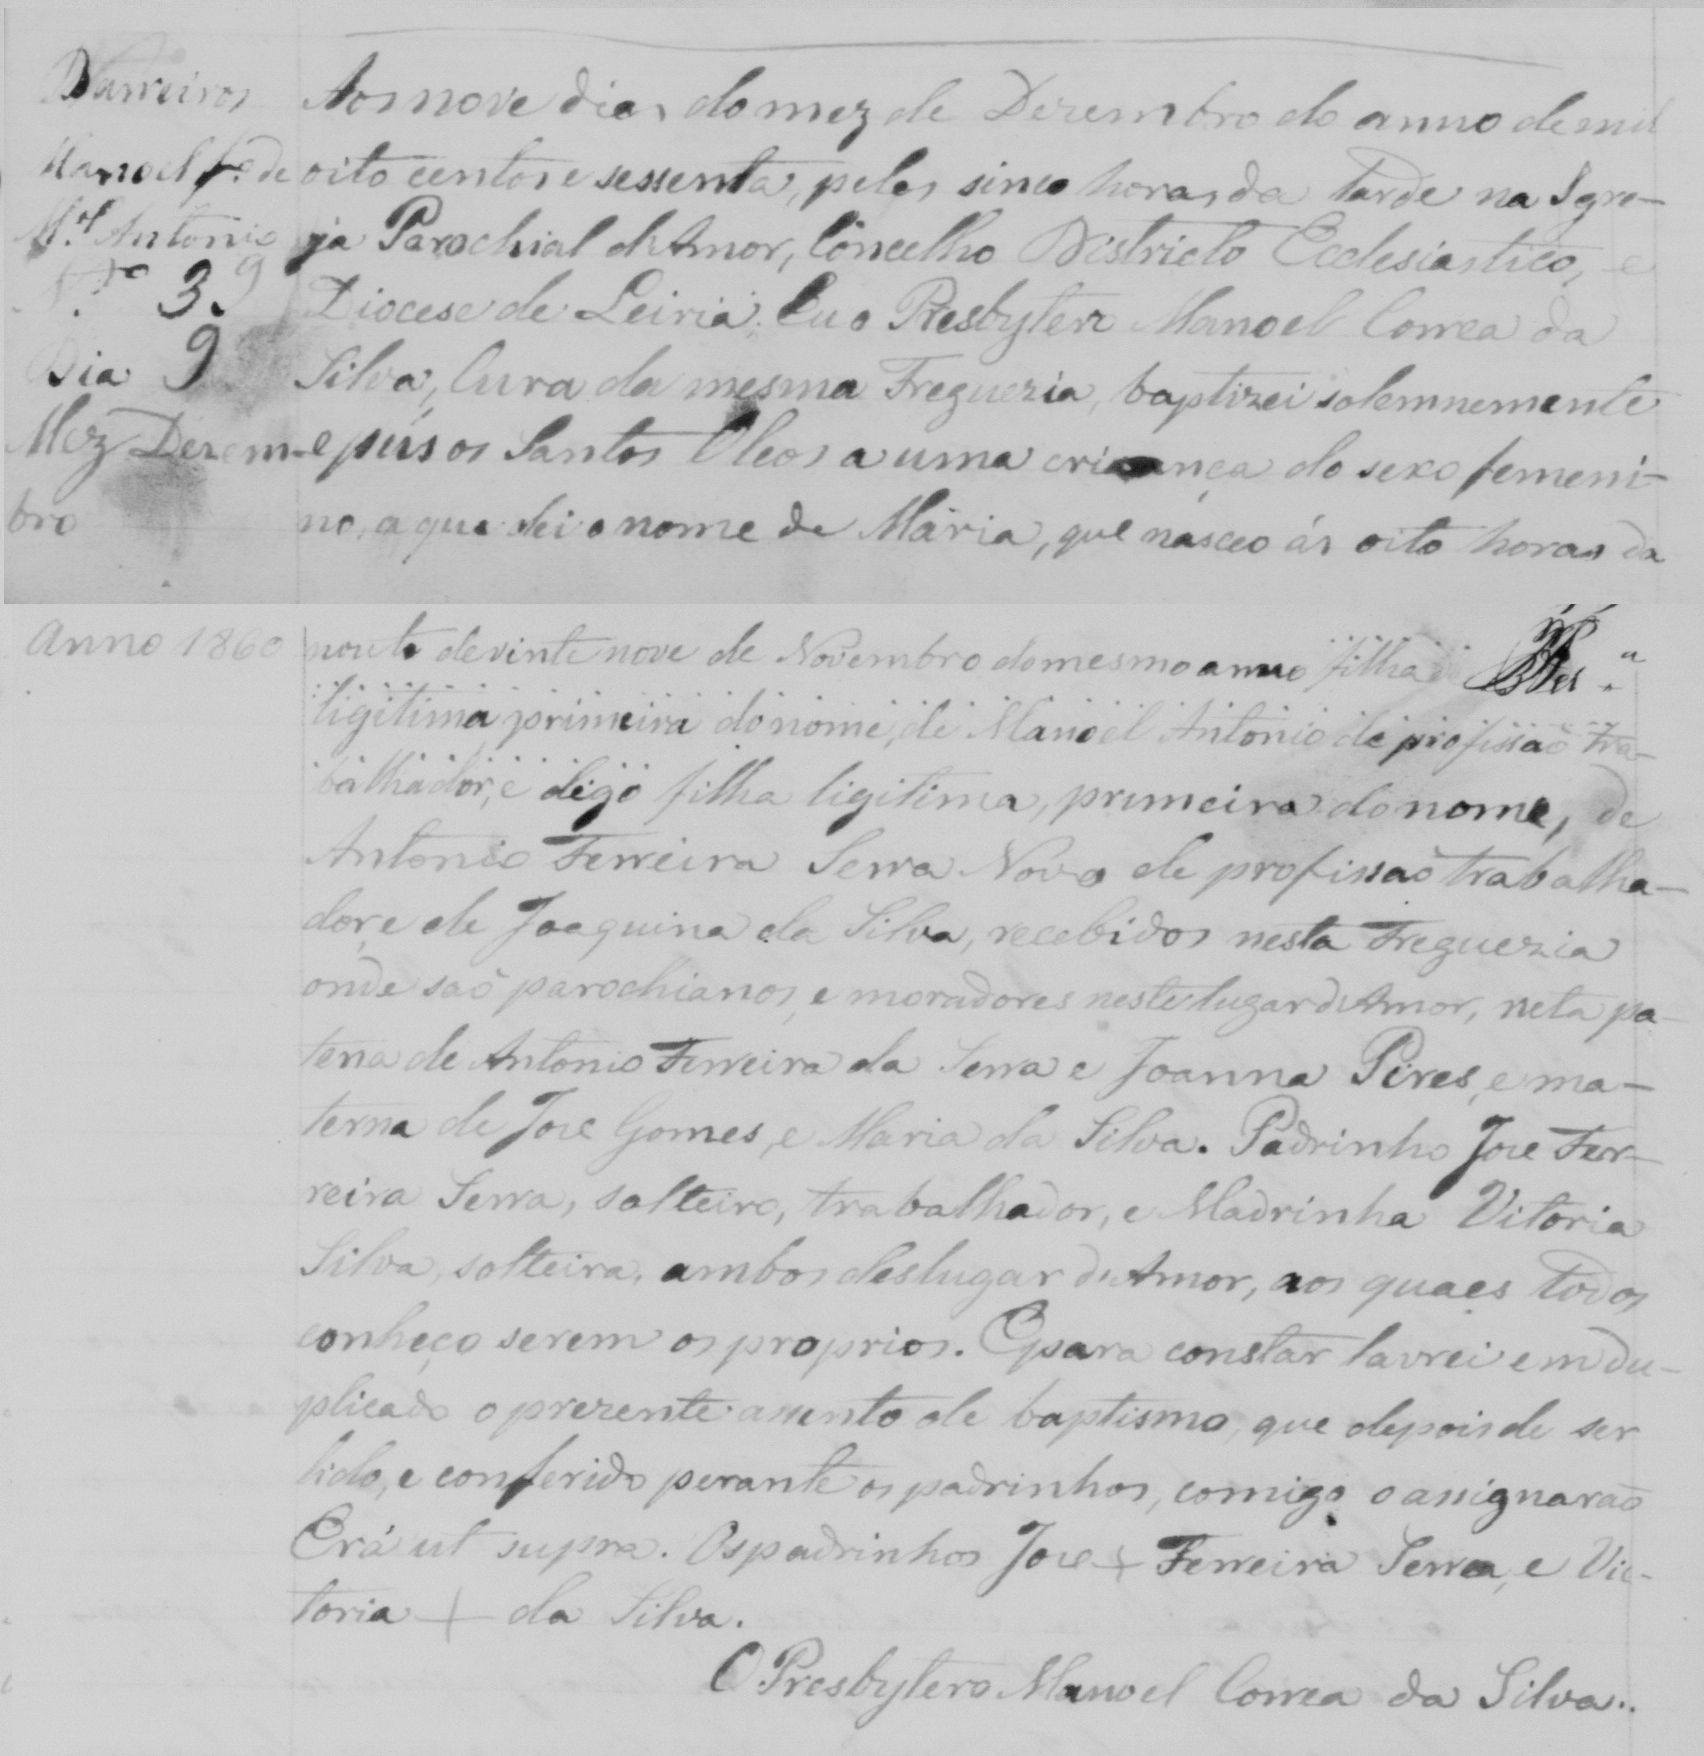 Barreiros
Manoel f.º de
M.el Antonio
N.º 39
Dia 9
Mez Dezem-
bro
Aos nove dias do mez de Dezembro do anno de mil
oito centos e sessenta, pelas sinco horas da tarde na Igre-
ja Parochial de Amor, Concelho Districto Ecclesiastico, e
Diocese de Leiria, Eu o Presbytero Manoel Correa da
Silva, Cura da mesma Freguezia, baptizei solemnemente
e pús os Santos Oleos a uma criança do sexo femeni-
no, a que dei o nome de Maria, que nasceo ás oito horas da
Anno 1860
noute de vinte nove de Novembro do mesmo anno filha
ligitima primeira do nome, de Manoel Antonio de profissaõ tra-
balhador, e digo filha ligitima, primeira do nome, de
Antonio Ferreira Serra Novo de profissaõ trabalha-
dor, e de Joaquina da Silva, recebidos nesta Freguezia
onde saõ parochianos, e moradores neste lugar de Amor, neta pa-
terna de Antonio Ferreira da Serra e Joanna Pires, e ma-
terna de Jose Gomes, e Maria da Silva. Padrinho Jose Fer-
reira Serra, solteiro, trabalhador, e Madrinha Vitoria
Silva, solteira, ambos deslugar de Amor, aos quaes todos
conheço serem os proprios. E para constar lavrei em du-
plicado o prezente assento de baptismo, que depois de ser
lido, e conferido perante os padrinhos, comigo o assignaraõ
Erá ut supra. Os padrinhos Jose + Ferreira Serra, e Vic-
toria + da Silva.
O Presbytero Manoel Correa da Silva..